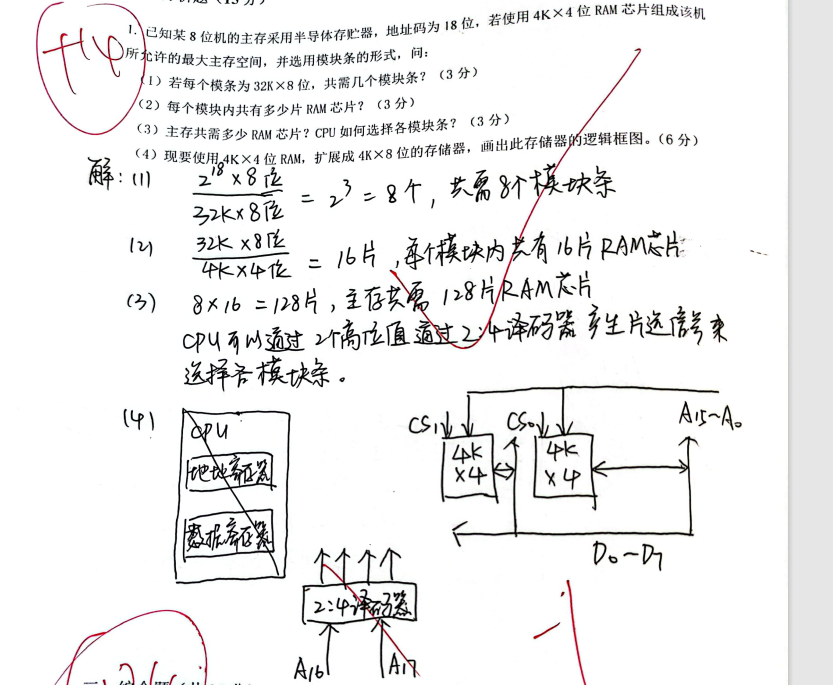 1. 已知某8位机的主存采用半导体存贮器，地址码为18位，若使用4K×4位RAM芯片组成该机
所允许的最大主存空间，并选用模块条的形式，问：
（1）若每个模条为32K×8位，共需几个模块条？（3分）
（2）每个模块内共有多少片RAM芯片？（3分）
（3）主存共需多少RAM芯片？CPU如何选择各模块条？（3分）
（4）现要使用4K×4位RAM，扩展成4K×8位的存储器，画出此存储器的逻辑框图。（6分）
解：(1) 2^18×8位 / 32K×8位 = 2^3 = 8个，共需8个模块条
(2) 32K×8位 / 4K×4位 = 16片，每个模块内共有16片RAM芯片
(3) 8×16=128片，主存共需128片RAM芯片
CPU可以通过2个高位值通过2:4译码器产生片选信号来
选择各模块条。
(4)
CPU
数据寄存器
2:4译码器
A16 A17
CS1 CS0 A15~A0
4K×4 4K×4
D0~D7